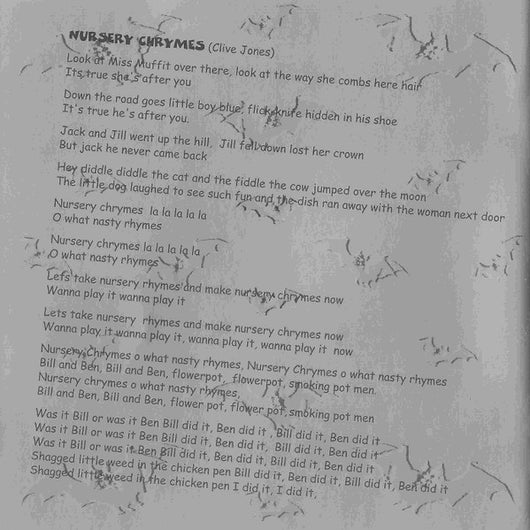 NURSERY CHRYMES (Clive Jones)
Look at Miss Muffit over there, look at the way she combs here hair
Its true she's after you
Down the road goes little boy blue, flick knife hidden in his shoe
It's true he's after you.
Jack and Jill went up the hill. Jill fell down lost her crown
But jack he never came back
Hey diddle diddle the cat and the fiddle the cow jumped over the moon
The little dog laughed to see such fun and the dish ran away with the woman next door
Nursery chrymes la la la la la
O what nasty rhymes
Nursery chrymes la la la la la
O what nasty rhymes
Lets take nursery rhymes and make nursery chrymes now
Wanna play it wanna play it
Lets take nursery rhymes and make nursery chrymes now
Wanna play it wanna play it, wanna play it, wanna play it now
Nursery Chrymes o what nasty rhymes, Nursery Chrymes o what nasty rhymes
Bill and Ben, Bill and Ben, flowerpot, flowerpot, smoking pot men.
Nursery chrymes o what nasty rhymes,
Bill and Ben, Bill and Ben, flower pot, flower pot, smoking pot men
Was it Bill or was it Ben Bill did it, Ben did it, Bill did it, Ben did it
Was it Bill or was it Ben Bill did it, Ben did it, Bill did it, Ben did it
Was it Bill or was it Ben Bill did it, Ben did it, Bill did it, Ben did it
Shagged little weed in the chicken pen Bill did it, Ben did it, Bill did it, Ben did it
Shagged little weed in the chicken pen I did it, I did it,